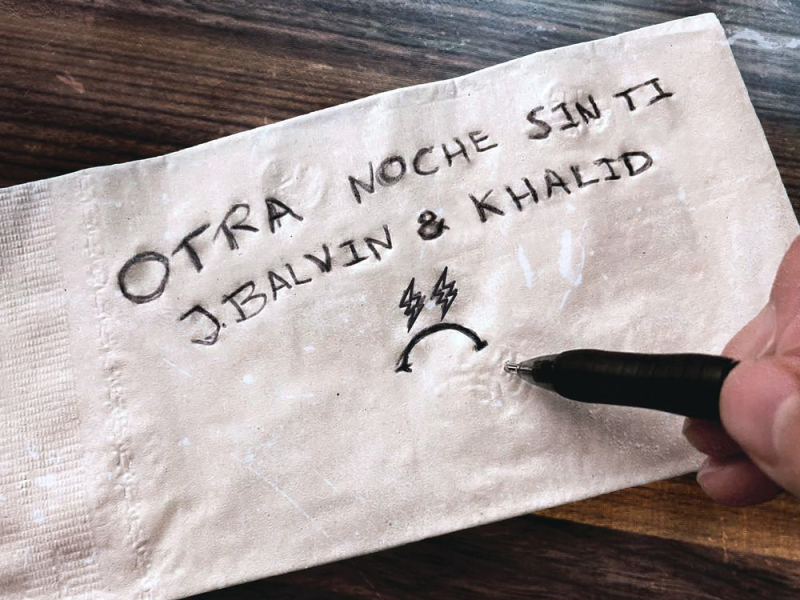 OTRA NOCHE SIN TI
J. BALVIN & KHALID